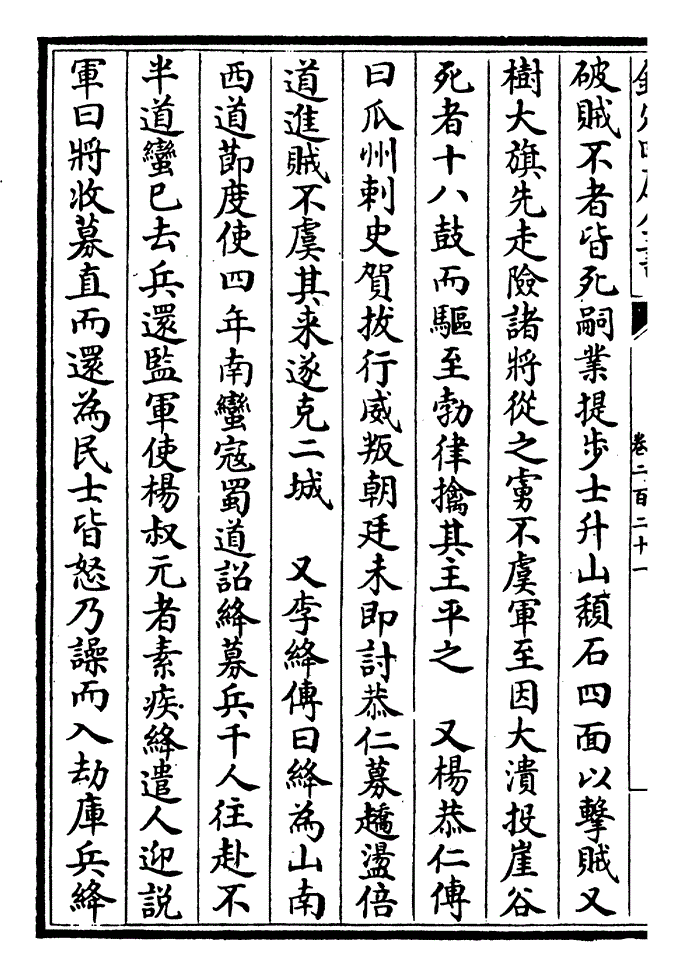 卷二百二十一
破賊不者皆死嗣業提步士升山頹石四面以擊賊又
樹大旗先走險諸將從之虜不虞軍至因大潰投崖谷
死者十八鼓而驅至勃律擒其主平之　又楊恭仁傳
曰瓜州刺史賀拔行威叛朝廷未即討恭仁募趫盪倍
道進賊不虞其来遂克二城　又李絳傳曰絳為山南
西道節度使四年南蠻寇蜀道詔絳募兵千人往赴不
半道蠻已去兵還監軍使楊叔元者素疾絳遣人迎説
軍曰將收募直而還為民士皆怒乃譟而入劫庫兵絳